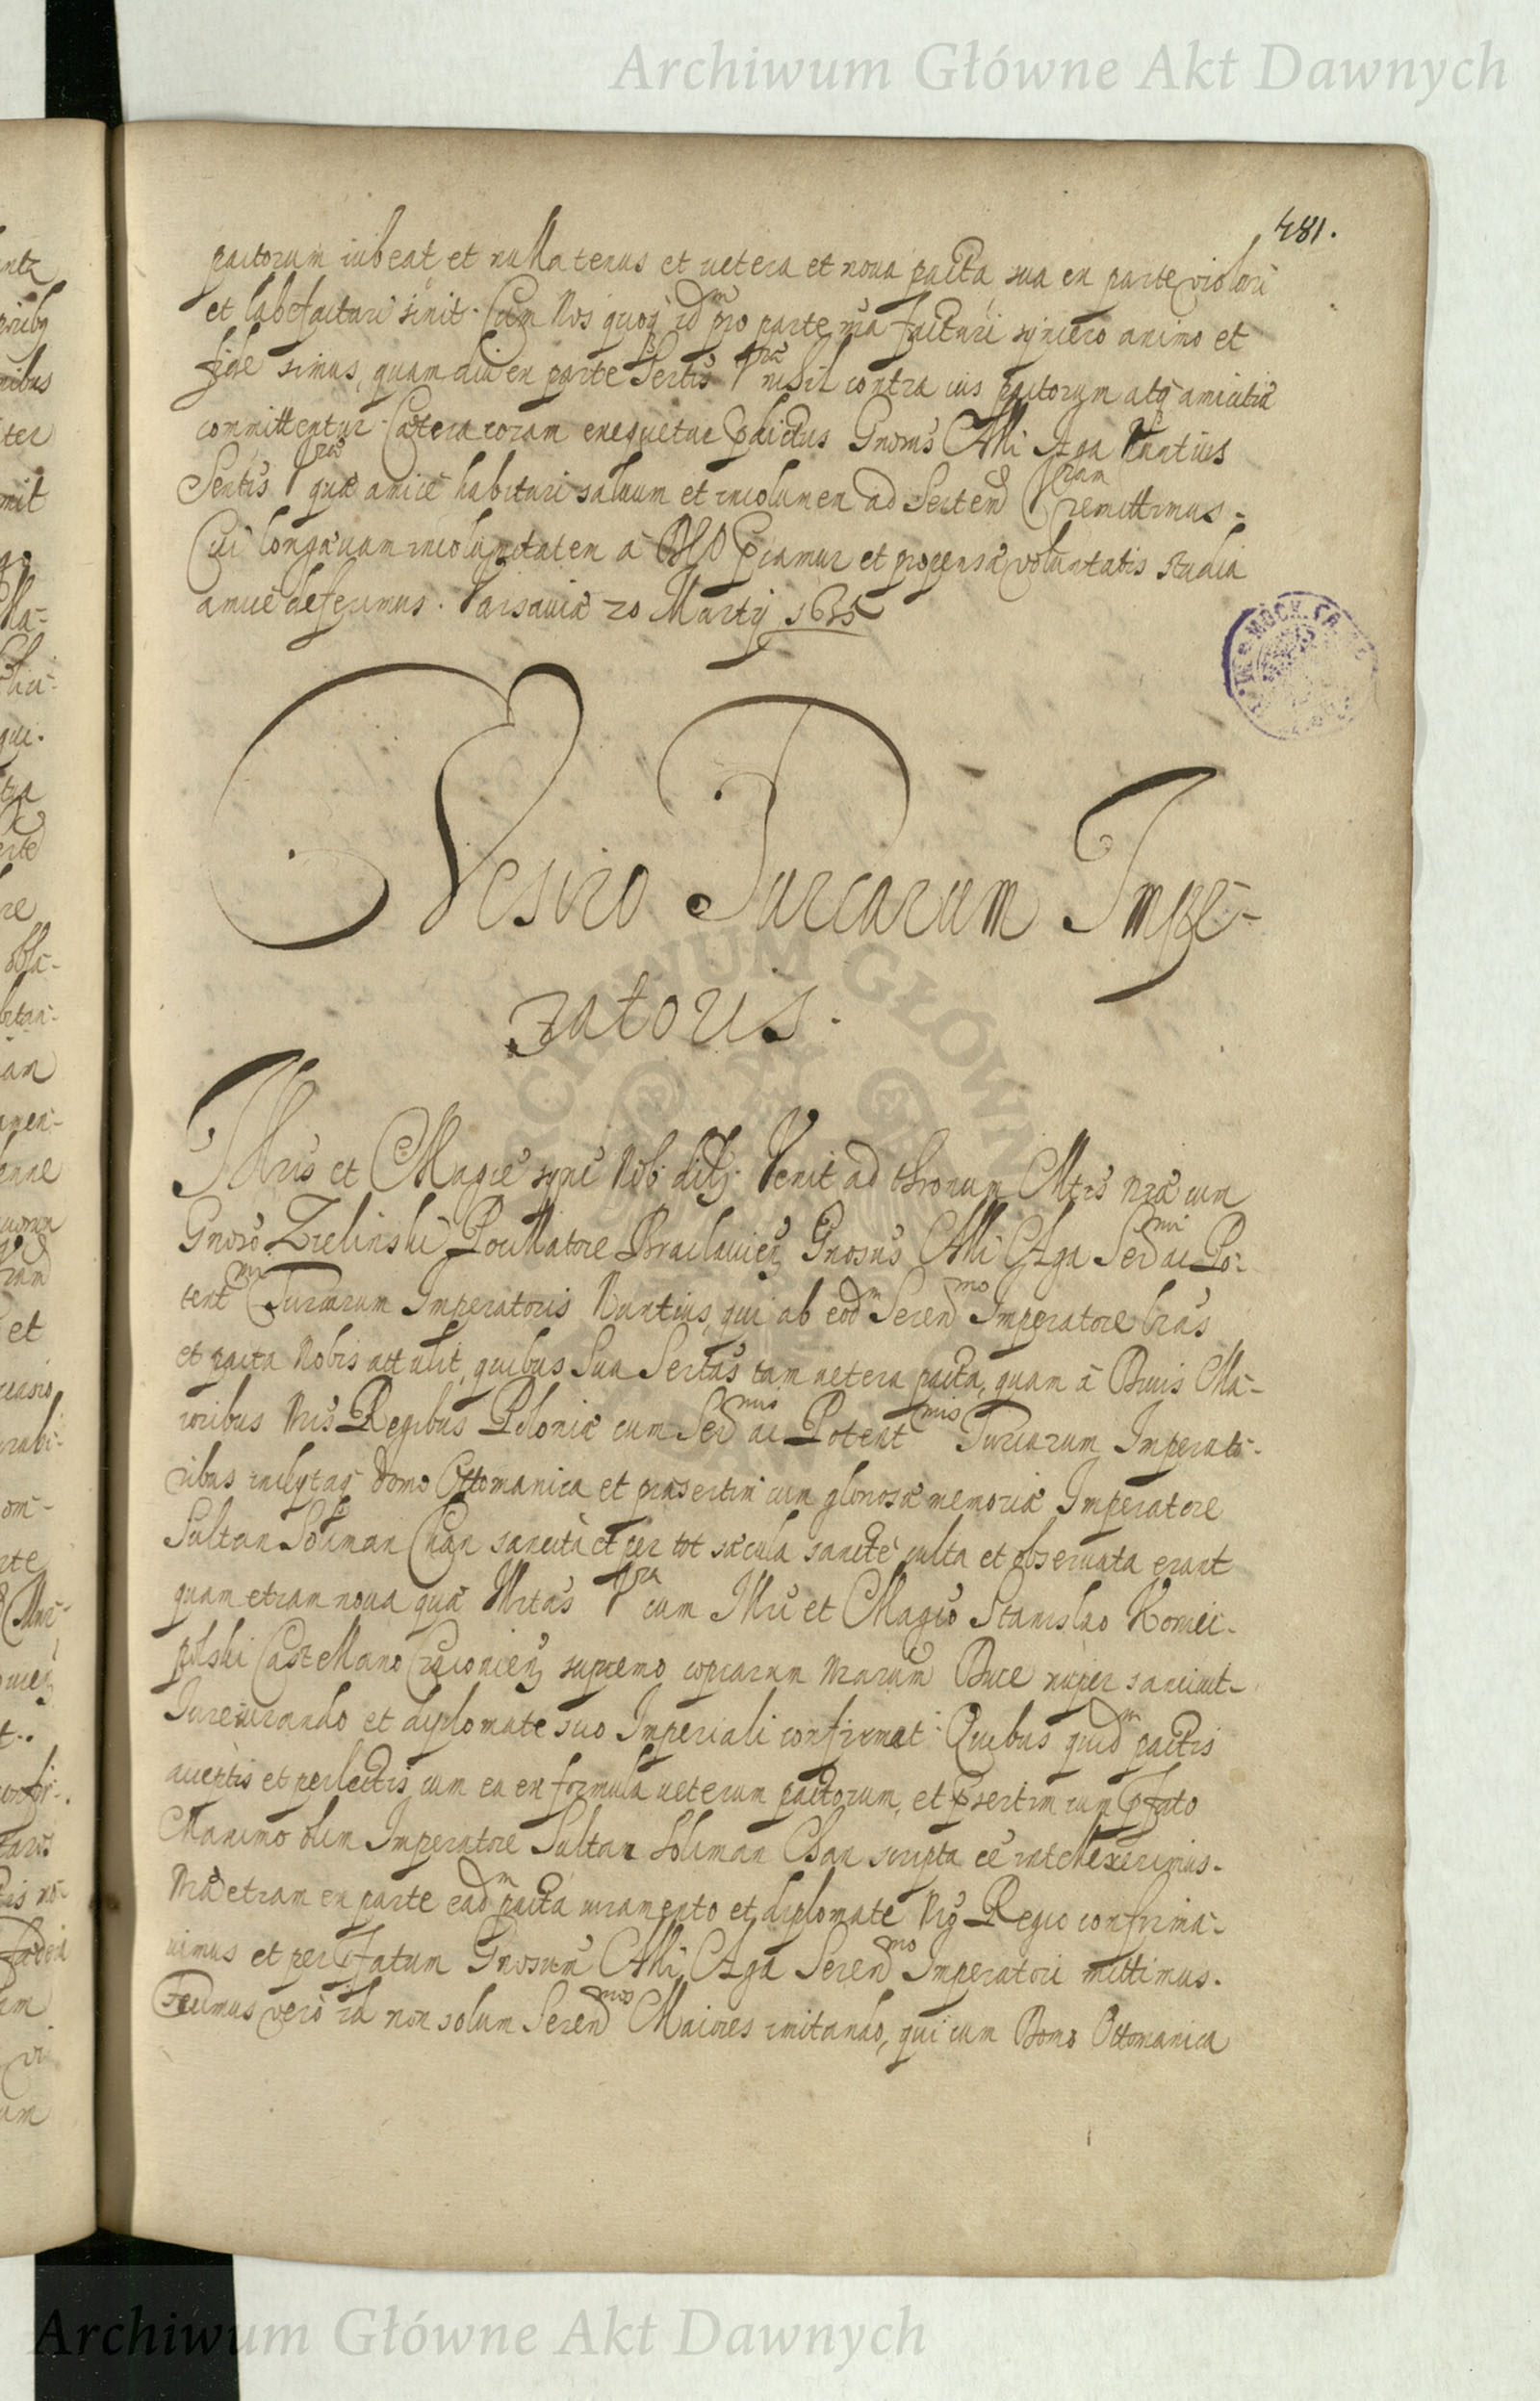 Archiwum Główne Akt Dawnych
481.
pactorum iubeat et nullatenus et uetera et noua pacta, sua ex parte violari
et labefactari sinit. Cum Nos quoq idm pro parte nra facturi syncero animo et
fide simus, quam diu ex parte Sertis Vrae nihil contra ius pactorum atq amicitia
committentur. Caetera coram exequetur pdictus Gnoms Alli Aga Nuntius
Sertis Vrae que amice habitum saluum et incolumen ad Serten Vram remittimus.
Cui longaeuam incolumitatem a DEO pcamur et propensae voluntatis studia
amice deferimus. Varsauiae 20 Martij 1635
Vesiro Turcarum Impe-
ratoris.
Illris et Magce syne Nob. dilg. Venit ad thronum Mtis nrae cum
Gnoso Zielinski Pocillatore Braclauien Gnosus Alli Aga Sermi ac Po-
tentmi Turcarum Imperatoris Nuntius, qui ab eodm Serenmo Imperatore lras
et pacta Nobis attulit, quibus Sua Sertas tam uetera pacta, quam a Diuis Ma-
ioribus Nris Regibus Poloniae cum Sermis ac Potentmis Turcarum Imperato-
ribus inclytaq domo Ottomanica et praesertim cum gloriosae memoriae Imperatore
Sultan Soliman Chan sancita et per tot saecula sancte culta et obseruata erant
quam etiam noua quae Mtas Vra cum Illri et Magco Stanislao Koniec-
polski Castellano Cracouien supremo copiarum nrarum Duce nuper sanciuit
Iureiurando et diplomate suo Imperiali confirmat. Quibus quidm pactis
acceptis et perlectis, cum ea ex formula ueterum pactorum, et psertim cum pfato
Maximo olim Imperatore Sultan Soliman Chan scripta ee intellexerimus.
Nra etiam ex parte eadm pacta iuramento et diplomate Nro Regio confirma-
uimus et per pfatum Gnosum Alli Aga Serenmo Imperatori mittimus.
Fecimus vero id non solum Serenmos Maiores imitando, qui cum Domo Ottomanica
Archiwum Główne Akt Dawnych